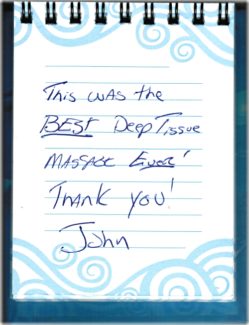 This was the
BEST Deep Tissue
Massage Ever!
Thank you!
John